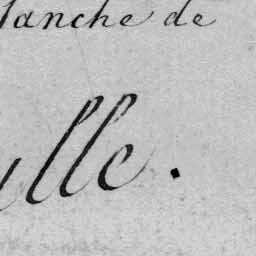 lanche de
ille.